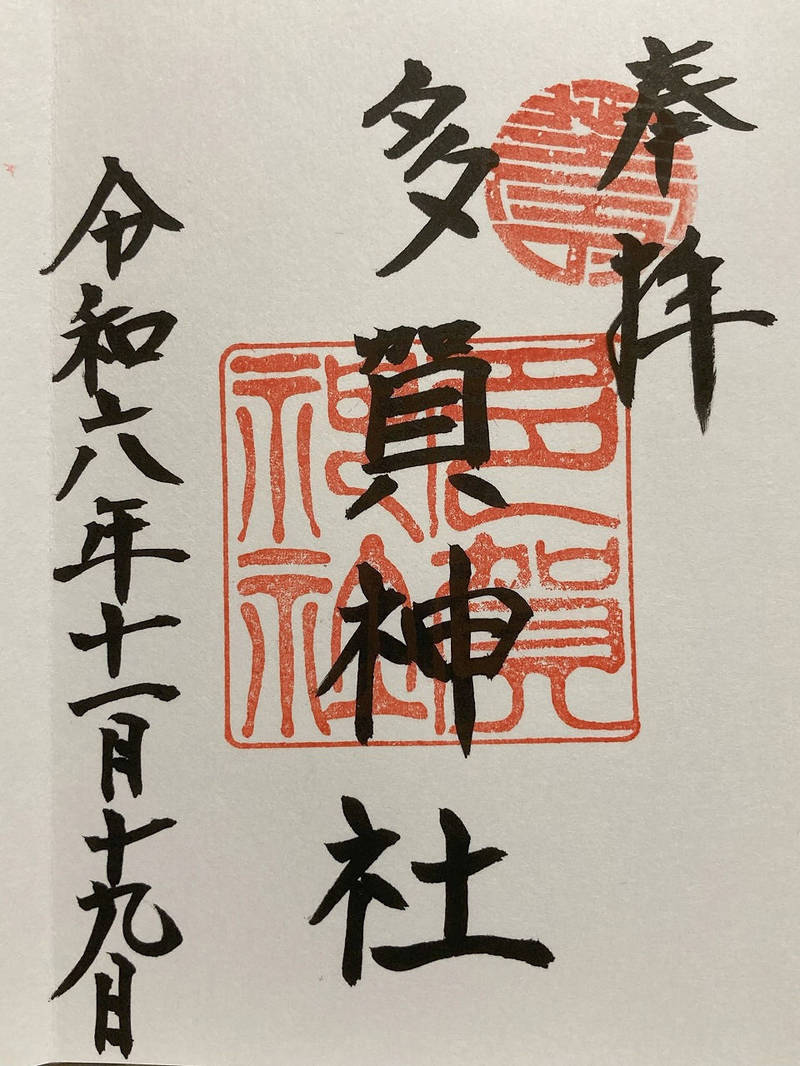 奉拝
多賀神社
多賀神社
令和六年十一月十九日